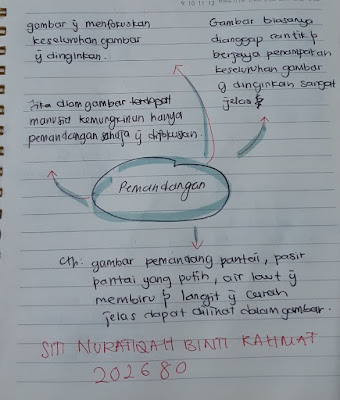 gambar ÿ menfokuskan
keseluruhan gambar
ÿ dinginkan.
Gambar biasanya
dianggap cantik þ
berjaya penampakan
keseluruhan gambar
g dinginkan sangat
jelas þ
Jika diam gambar terdapat
manusia kemungkinan hanya
pemandangan sahaja ÿ difokuskan.
Pemandangan
Cth: gambar pemandang pantai, pasir
pantai yang putih, air laut ÿ
membiru þ langit ÿ cerah
jelas dapat dilihat dalam gambar.
SITI NURATIQAH BINTI RAHMAT
202680